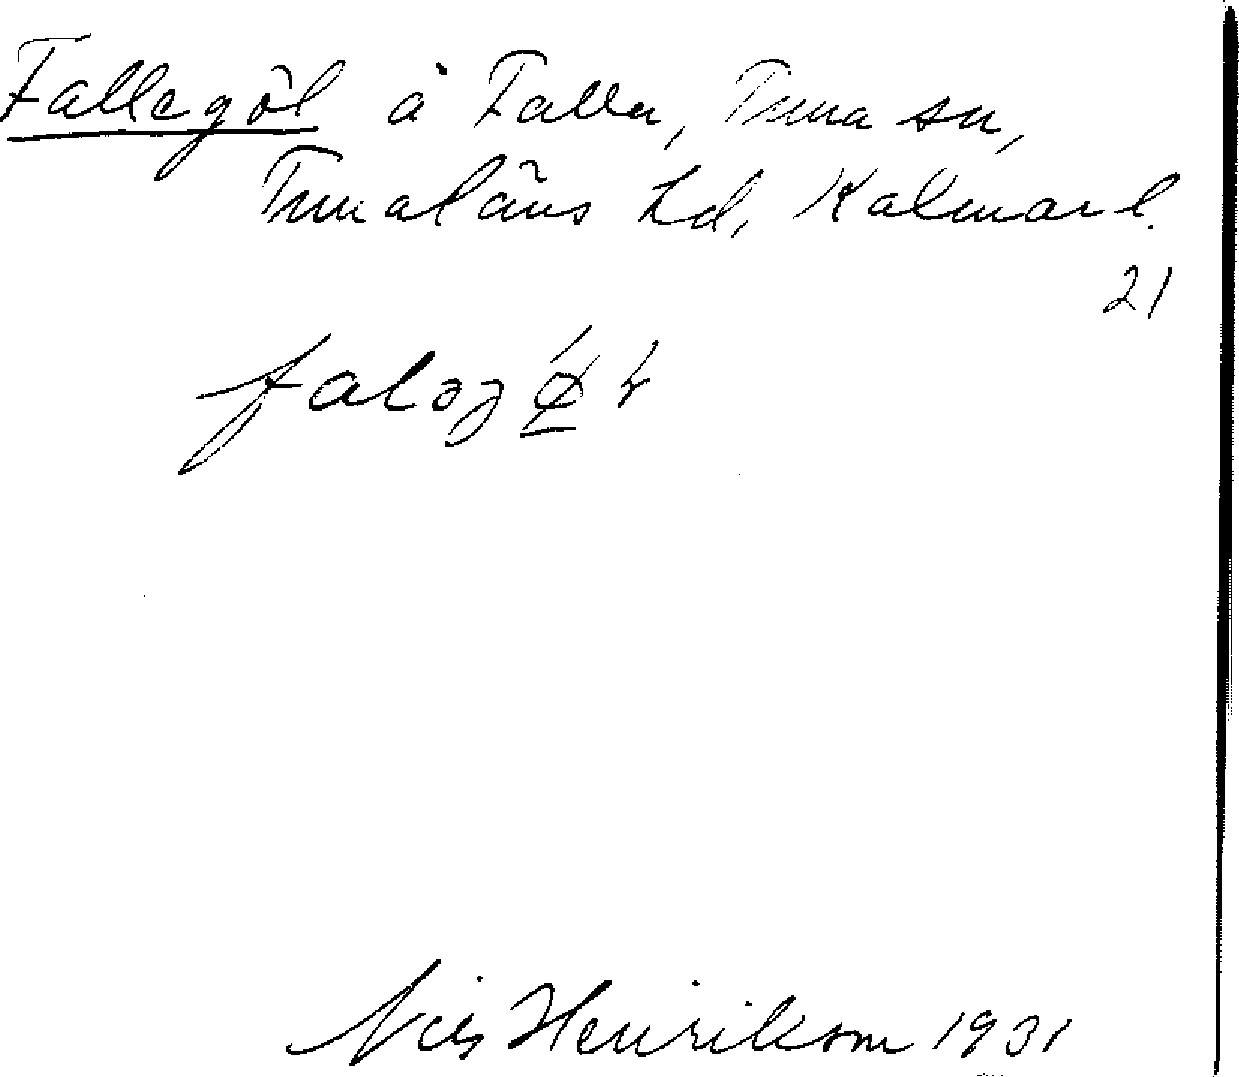 Fallegöl å Falla, Tuna sn,
Tunaläns hd, Kalmar l.
21
Nils Henrikson 1931